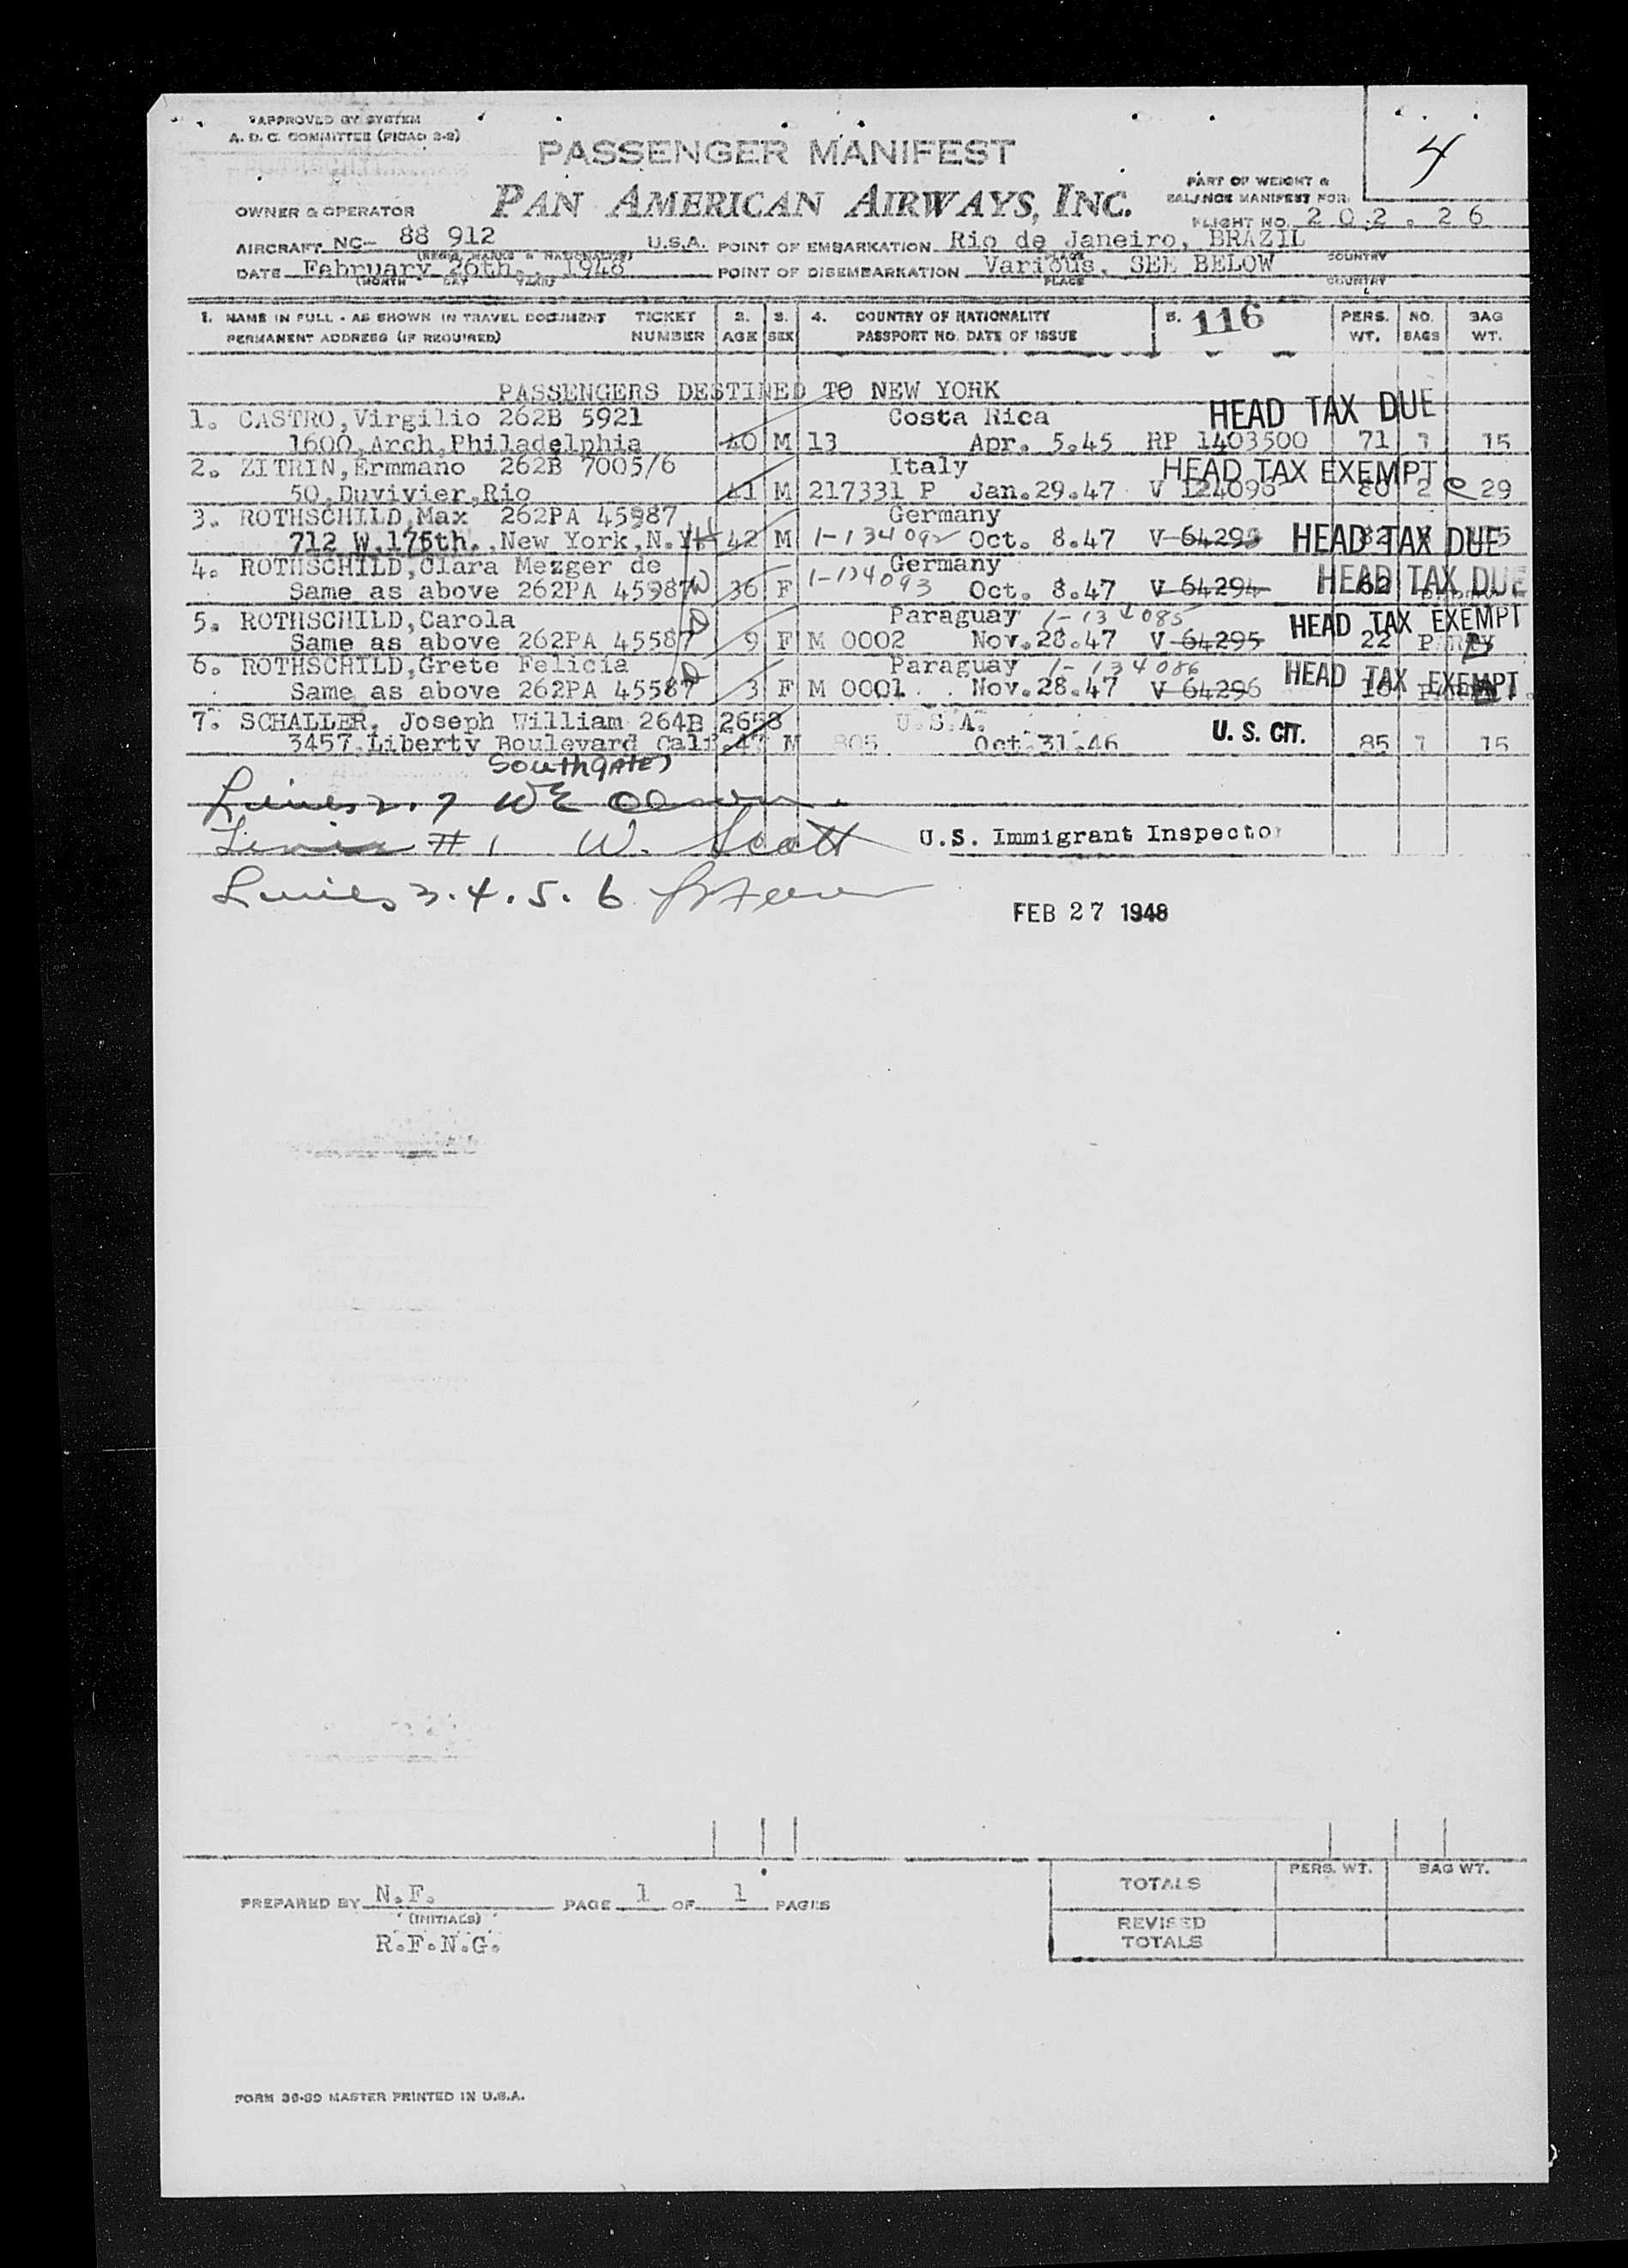 APPROVED BY SYSTEM
A. D. C. COMMITTEE (PICAO 2-2)
PASSENGER MANIFEST
4
PAN AMERICAN AIRWAYS, INC.
PART OF WEIGHT &
BALANCE MANIFEST FOR
OWNER & OPERATOR
FLIGHT NO. 202.26
AIRCRAFT NC- 88 912 U.S.A. POINT OF EMBARKATION Rio de Janeiro, BRAZIL
(REGIS. MARKS & NATIONALITY) PLACE COUNTRY
DATE Fabruary 26th., 1948 POINT OF DISEMBARKATION Various, SEE BELOW
(MONTH DAY YEAR) PLACE COUNTRY
1. NAME IN FULL - AS SHOWN IN TRAVEL DOCUMENT TICKET 2. 3. 4. COUNTRY OF NATIONALITY 5. 116 PERS. NO. BAG
PERMANENT ADDRESS (IF REQUIRED) NUMBER AGE SEX PASSPORT NO. DATE OF ISSUE WT. BAGS WT.
PASSENGERS DESTINED TO NEW YORK
1. CASTRO,Virgilio 262B 5921 Costa Rica HEAD TAX DUE
1600,Arch,Philadelphia 40 M 13 Apr. 5.45 RP 1403500 71 1 15
2. ZITRIN,Ermmano 262B 7005/6 Italy HEAD TAX EXEMPT
50,Duvivier,Rio 41 M 217331 P Jan.29.47 V 124096 80 2 29
3. ROTHSCHILD,Max 262PA 45987 Germany
712 W.175th.,New York,N.Y. H 42 M 1-134092 Oct. 8.47 V 64293 HEAD TAX DUE 82
4. ROTHSCHILD,Clara Mezger de Germany
Same as above 262PA 45987 W 36 F 1-134093 Oct. 8.47 V 64294 HEAD TAX DUE 62
5. ROTHSCHILD,Carola Paraguay 1-134085
Same as above 262PA 45587 D 9 F M 0002 Nov.28.47 V 64295 HEAD TAX EXEMPT 22
6. ROTHSCHILD,Grete Felicia Paraguay 1-134086
Same as above 262PA 45587 D 3 F M 0001 Nov.28.47 V 64296 HEAD TAX EXEMPT
7. SCHALLER, Joseph William 264B 2658 U.S.A.
3457,Liberty Boulevard Calif. 47 M 805 Oct.31.46 U. S. CIT. 85 1 15
SouthgATE
Lines 2.7 WE
Line #1 W. Scott U.S. Immigrant Inspector
Lines 3.4.5.6
FEB 27 1948
PERS. WT. BAG WT.
TOTALS
PREPARED BY N.F. PAGE 1 OF 1 PAGES
(INITIALS)
REVISED
TOTALS
R.F.N.G.
FORM 36-60 MASTER PRINTED IN U.S.A.